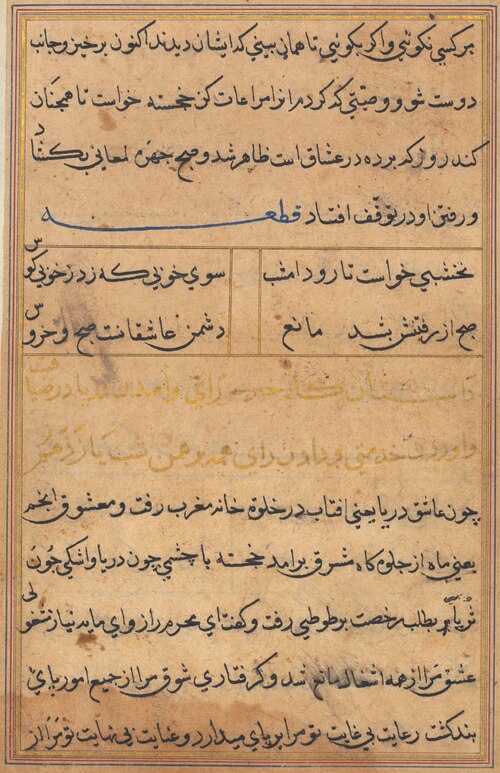 هر کسی نکوئی و اکر بکوئی تا همان بینی که ایشان دیدند اکنون برخیز و جانب
دوست شو و وصیتی که کردم انرا مراعات کن خجسته خواست تا همچنان
کند روز که پرده در عشاق است ظاهر شد و صبح چهره لمعانی بکشاد
و رفتن او در توقف افتاد قطعه
نخشبی خواست تا رود امشب سوی خوبی که زد ز خوبی کوس
صبح از رفتنش بشد مانع دشمن عاشقانت صبح و خروس
داستان
چون عاشق دریا یعنی افتاب در خلوه خانه مغرب رفت و معشوق انجم
یعنی ماه از جلوه کاه مشرق برامد خجسته با چشمی چون دریا و اشکی چون
ثریا بطلب رخصت بر طوطی رفت و کفت ای محرم راز و ای مایه نیاز نتغولی
عشق مرا از همه اشغال مانع شد و کرفتاری شوق مرا از جمیع امور پای
بند کشت رعایت بی غایت تو مرا بر پای میدارد و عنایت بی نهایت تو مرا از